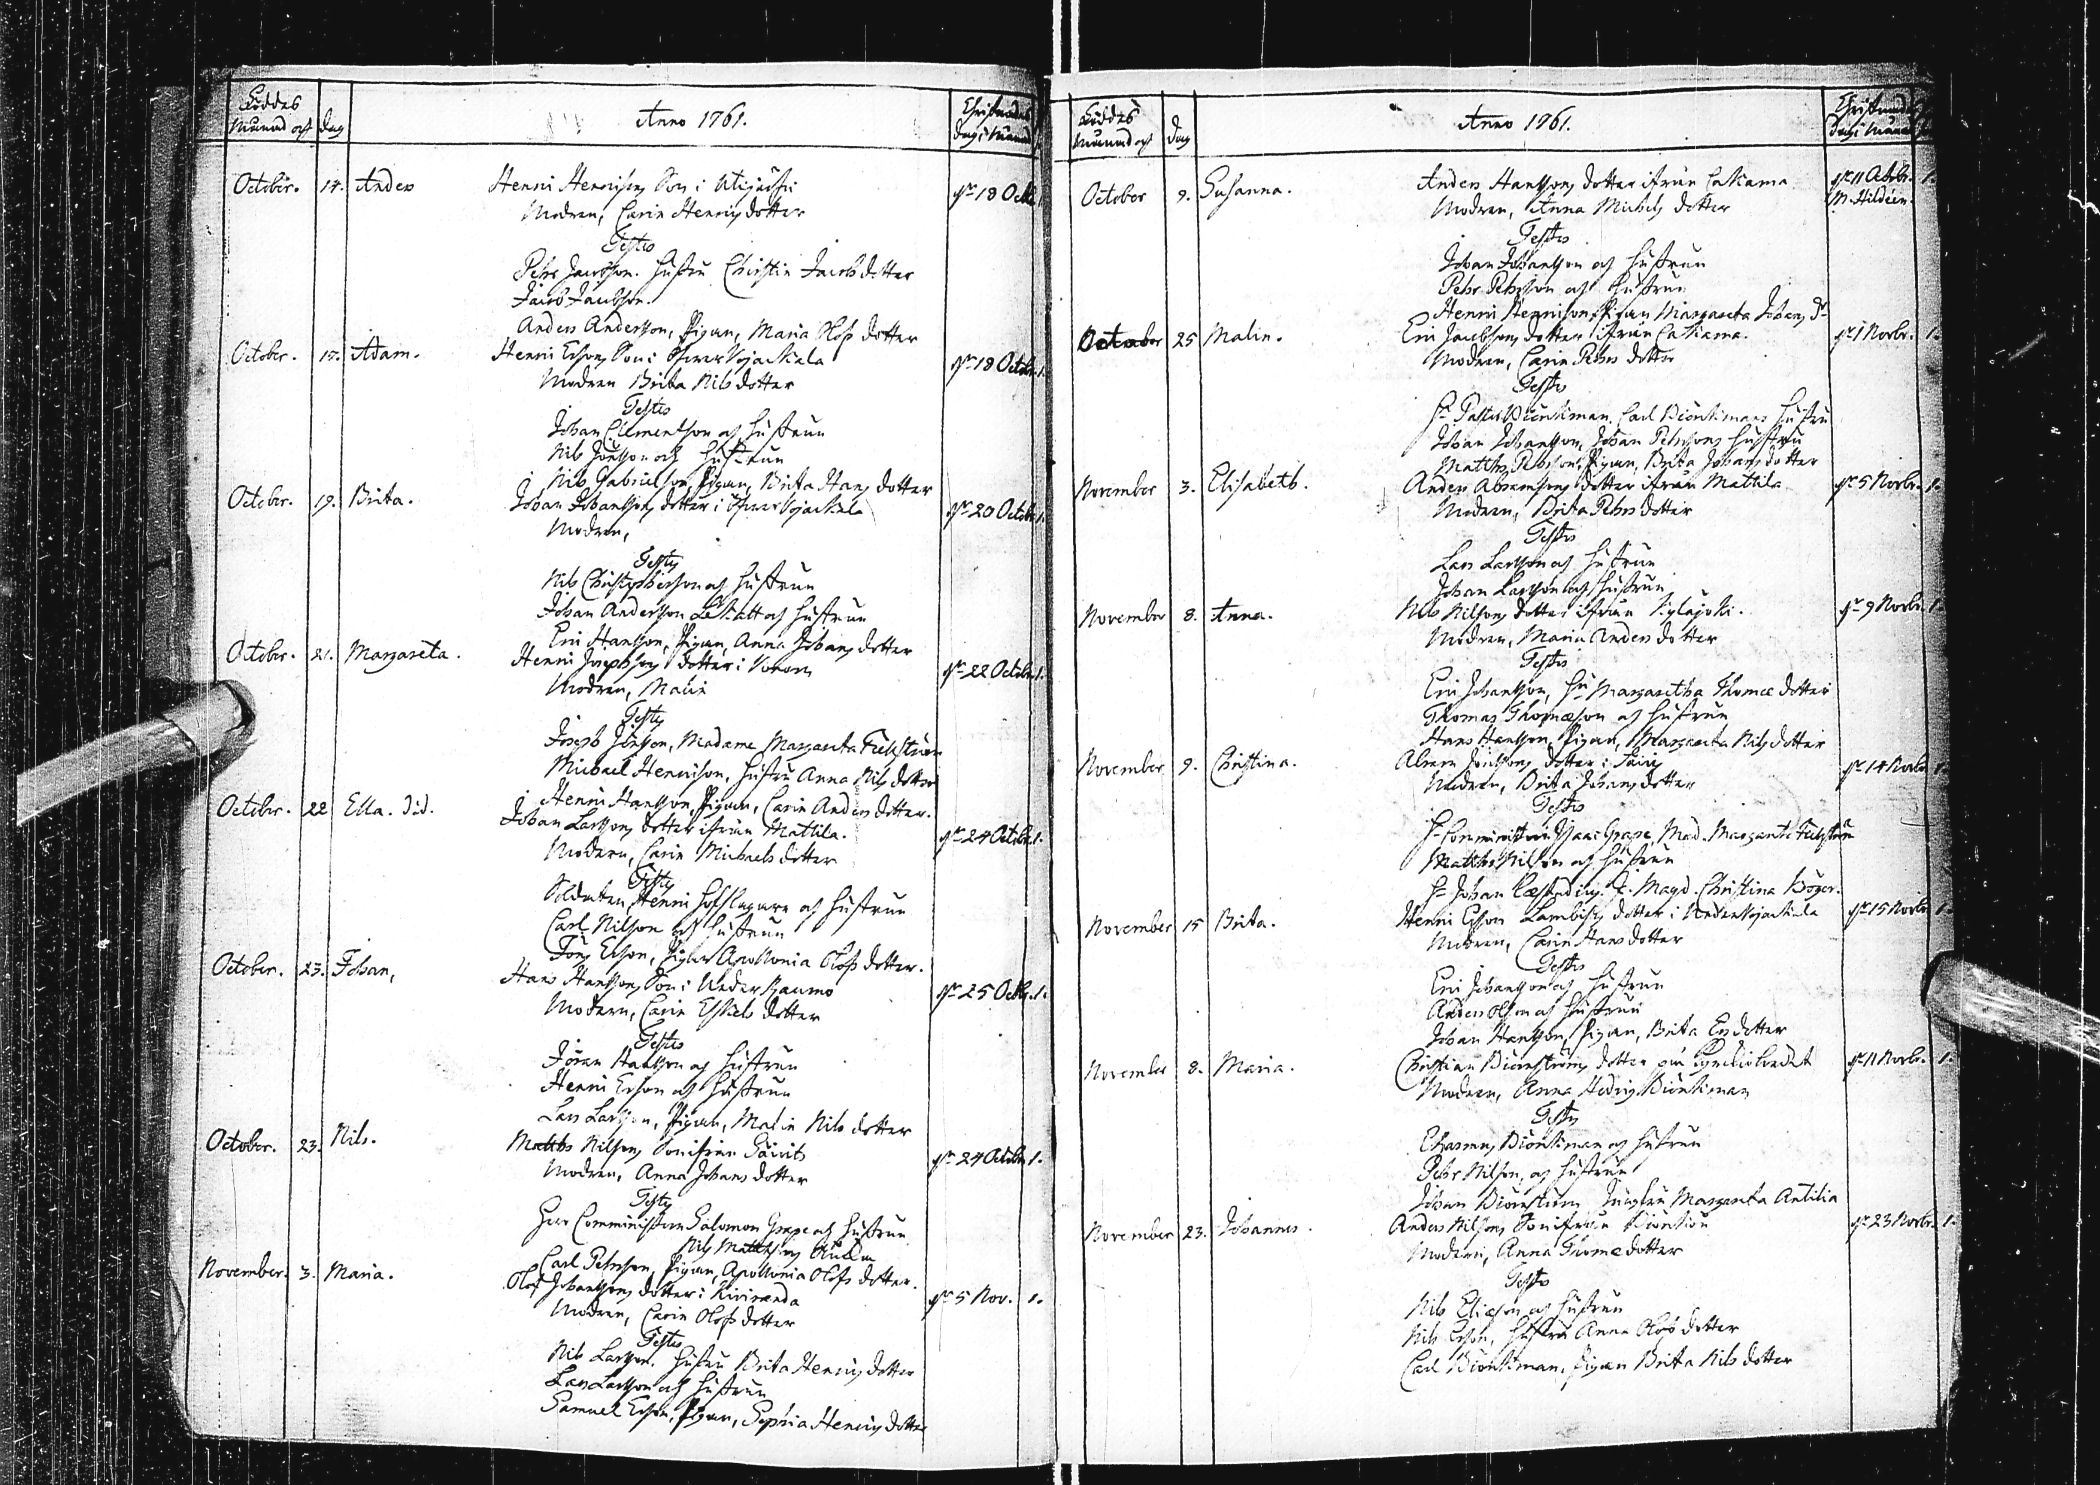 Föddes
Månad och dag
Anno 1761.
Christnades
dag i Månad
October. 14. Anders
Henric Henricsons Son i
den 18 Octbr. 1.
Modren, Carin Henrics dotter
Testes
Pehr Jacobsson. hustru Christin Jacobs dotter
Jacob Jacobsson.
Anders Andersson, Pigan, Maria Olofs dotter
October. 15. Adam.
Henric Ersons Son i Öfwer Wojackala
den 18 Octobr. 1.
Modren Brita Nils dotter
Testes
Johan Clementsson och hustrun
Nils Jönsson och hustrun
Nils Gabrielson, Pigan, Brita Hans dotter
October. 19. Brita.
Johan Johanssons dotter i Öfwer Wojackala
den 20 Octobr. 1.
Modren,
Testes
Nils Christophersson och hustrun
Johan Andersson och hustrun
Eric Hansson, Pigan, Anna Johans dotter
October. 21. Margareta.
Henric Josephsons dotter i
den 22 Octobr. 1.
Modren, Malin
Testes
Joseph Jönsson, Madame Margareta
Michael Henricson, hustru Anna Nils dotter
Henric Hansson, Pigan, Carin Anders dotter.
October. 22 Ella.
Johan Larssons dotter ifrån Mattila.
den 24 Octobr. 1.
Modren, Carin Michaels dotter
Testes
Soldaten, Henric och hustrun
Carl Nilsson och hustrun
Jöns Erson, Pigan Apollonia Olofs dotter.
October. 23. Johan,
Hans Hanssons Son i Neder
den 25 Octbr. 1.
Modren, Carin Eskils dotter
Testes
Jöran Hansson och hustrun
Henric Erson och hustrun
Lars Larsson, Pigan, Malin Nils dotter
October. 23. Nils.
Matths Nilsons Son ifrån
den 24 Octobr. 1.
Modren, Anna Johans dotter
Testes
Herr Comministern Salomon Grape och hustrun
Nils Matthsons
Carl Pehrsson, Pigan, Apollonia Olofs dotter.
November. 3. Maria.
Olof Johanssons dotter i Kiviranda
den 5 Nov. 1.
Modren, Carin Olofs dotter
Testes
Nils Larsson, hustru Brita Henrics dotter
Lars Larsson och hustrun
Samuel Erson, Pigan, Sophia Henrics dotter
Föddes
Månad och dag
Anno 1761.
Christnades
dag i Månad
October 9. Susanna.
Anders Hanssons dotter ifrån Lakiama
den 11 Octobr. 1.
Modren, Anna Michels dotter
M. Hildeen
Testes
Johan Johansson och hustrun
Pehr Pehrsson och hustrun
Henric Henricson, Pigan Margareta Johans Dr
October 25 Malin.
Eric Jacobsons dotter ifrån Lakiama.
den 1 Novbr. 1.
Modren, Carin Pehrs dotter
Testes
Hr Pastor Biörkman, Carl Biörkmans hustru
Johan Johansson, Johan Pehrssons hustru
Matths Pehrsson, Pigan, Brita Johans dotter
November 3. Elisabeth.
Anders Abramsons dotter ifrån Mattila
den 5 Novbr. 1.
Modren, Brita Pehrs dotter
Testes
Lars Larsson och hustrun
Johan Larsson och hustrun
November 8. Anna.
Nils Nilsons dotter ifrån
den 9 Novbr. 1.
Modren, Maria Anders dotter
Testes
Eric Johansson, Hu Margaretha Thomæ dotter
Thomas Thomæson och hustrun
Hans Hansson, Pigan, Margareta Nils dotter
November 9. Christina.
Abram dotter i
den 14 Novbr. 1.
Modren, Brita Johans dotter
Testes
Hr Comministern Isaac Grape, Mad. Margareta
Matths Nilsson och hustrun
Hr Johan Magd. Christina
November 15 Brita.
Henric Erson dotter i Neder Wojackala
den 15 Novbr. 1.
Modren, Carin Hans dotter
Testes
Eric Johansson och hustrun
Anders Olsson och hustrun
Johan Hansson, Pigan, Brita Ers dotter
November 8. Maria.
Christian Biörnströms dotter
den 11 Novbr. 1.
Modren, Anna Hedvig Biörkman
Testes
Erasmus Biörkman och hustrun
Pehr Nilson, och hustrun
Johan Biörnström, Jungfru Margareta Antilia
November 23. Johannes.
Anders Nilsons Son ifrån
den 23 Novbr. 1.
Modren, Anna Thomæ dotter
Testes
Nils Eliæson och hustrun
Nils Erson, hustru Anna Olofs dotter
Carl Biörkman, Pigan Brita Nils dotter